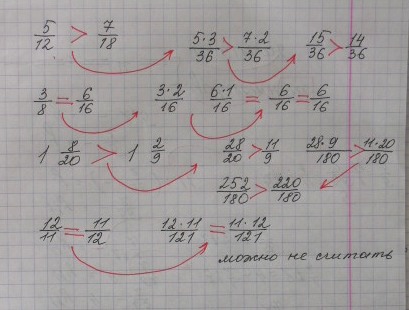 5/12 > 7/18 5·3/36 > 7·2/36 15/36 > 14/36
3/8 = 6/16 3·2/16 6·1/16 = 6/16 = 6/16
1 8/20 > 1 2/9 28/20 > 11/9 28·9/180 > 11·20/180
252/180 > 220/180
12/11 = 11/12 12·11/121 = 11·12/121
можно не считать